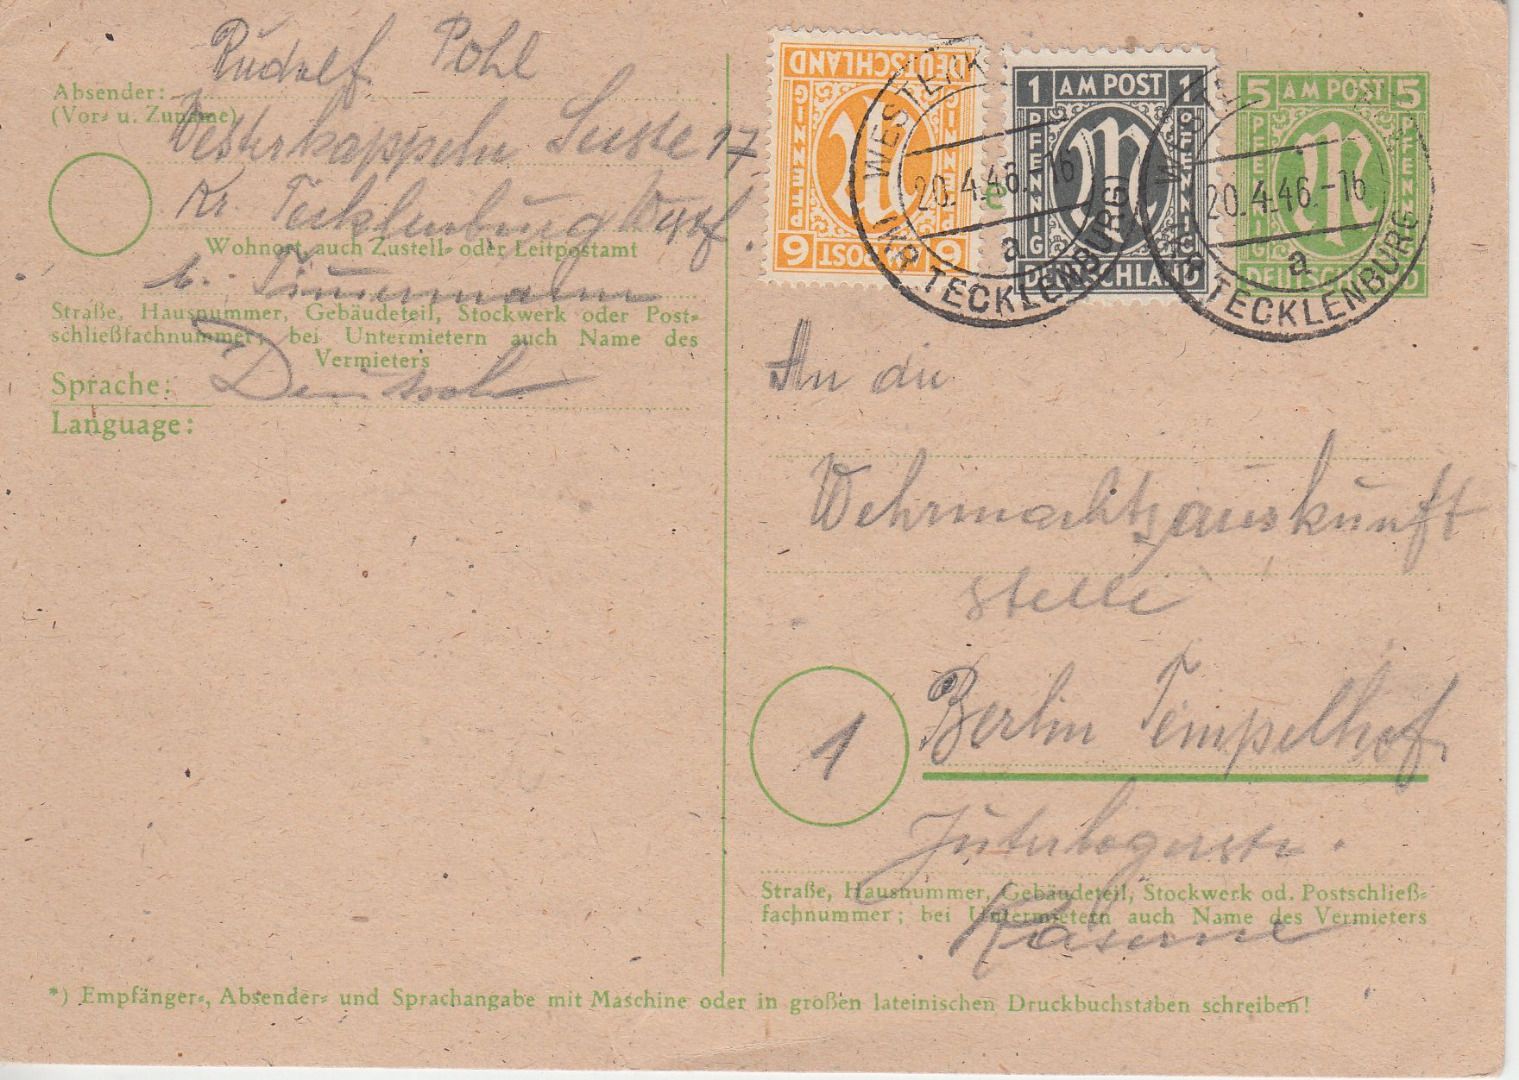 Rudolf Pohl
Absender:
(Vor- u. Zuname)
Westerkappeln Seeste 17
Kr. Tecklenburg Westf.
Wohnort, auch Zustell- oder Leitpostamt
b.
Straße, Hausnummer, Gebäudeteil, Stockwerk oder Post-
schließfachnummer; bei Untermietern auch Name des
Vermieters
Sprache: Deutsch
Language:
DEUTSCHLAND
PFENNIG PFENNIG
6 AM POST 6
1 AM POST 1
PFENNIG PFENNIG
DEUTSCHLAND
5 AM POST 5
PFENNIG PFENNIG
DEUTSCHLAND
20.4.46.-16
a
(KR TECKLENBURG)
20.4.46.-16
a
(KR TECKLENBURG)
An die
Wehrmachtsauskunft
stelle
1 Berlin Tempelhof
Jüterbogerstr.
Straße, Hausnummer, Gebäudeteil, Stockwerk od. Postschließ-
fachnummer; bei Untermietern auch Name des Vermieters
Kaserne
*) Empfänger-, Absender- und Sprachangabe mit Maschine oder in großen lateinischen Druckbuchstaben schreiben!